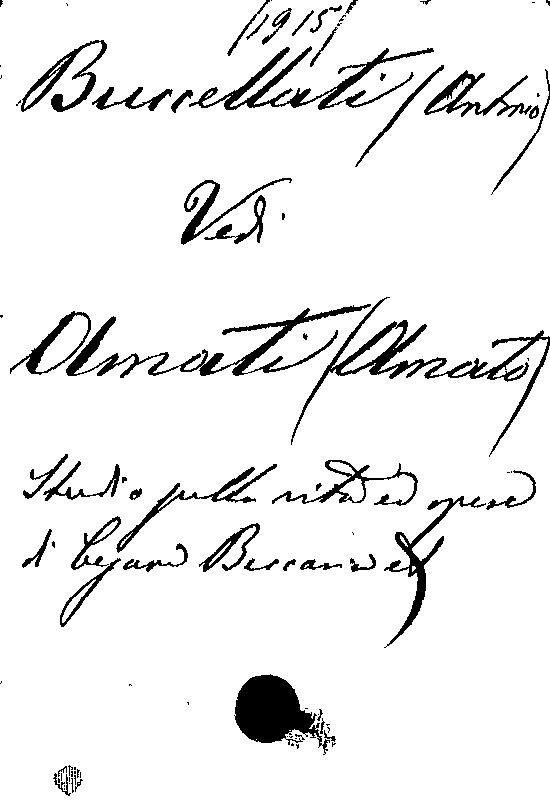 (1915)
Buccellati (Antonio)
Vedi
Amati (Amato)
Studio sulla vita ed opere
di Cesare Beccaria